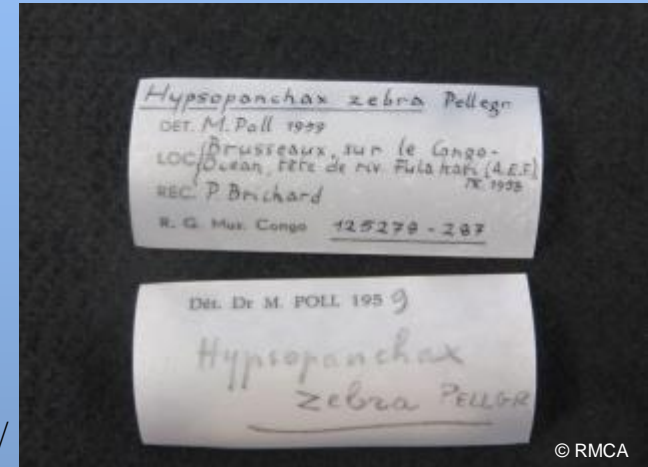 Hypsopanchax zebra Pellegr
DET. M. Poll 1959
LOC. Brusseaux, sur le Congo-
Océan, tête de riv. Fulakari (A.E.F.)
IX. 1958
REC. P. Brichard
R. G. Mus. Congo 125278-287
Dét. Dr M. POLL 1959
Hypsopanchax
zebra PELLGR
/
© RMCA